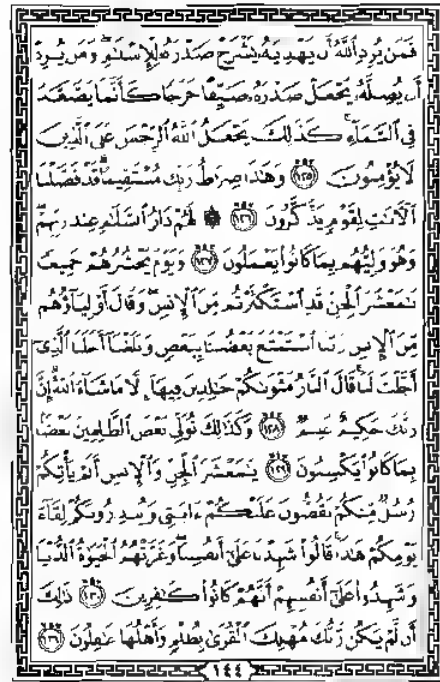 فَمَن يُرِدِ ٱللَّهُ أَن يَهْدِيَهُۥ يَشْرَحْ صَدْرَهُۥ لِلْإِسْلَـٰمِ ۖ وَمَن يُرِدْ
أَن يُضِلَّهُۥ يَجْعَلْ صَدْرَهُۥ ضَيِّقًا حَرَجًا كَأَنَّمَا يَصَّعَّدُ
فِى ٱلسَّمَآءِ ۚ كَذَٰلِكَ يَجْعَلُ ٱللَّهُ ٱلرِّجْسَ عَلَى ٱلَّذِينَ
لَا يُؤْمِنُونَ ١٢٥ وَهَـٰذَا صِرَٰطُ رَبِّكَ مُسْتَقِيمًا ۗ قَدْ فَصَّلْنَا
ٱلْـَٔايَـٰتِ لِقَوْمٍ يَذَّكَّرُونَ ١٢٦ ۞ لَهُمْ دَارُ ٱلسَّلَـٰمِ عِندَ رَبِّهِمْ ۖ
وَهُوَ وَلِيُّهُم بِمَا كَانُوا۟ يَعْمَلُونَ ١٢٧ وَيَوْمَ يَحْشُرُهُمْ جَمِيعًا
يَـٰمَعْشَرَ ٱلْجِنِّ قَدِ ٱسْتَكْثَرْتُم مِّنَ ٱلْإِنسِ ۖ وَقَالَ أَوْلِيَآؤُهُم
مِّنَ ٱلْإِنسِ رَبَّنَا ٱسْتَمْتَعَ بَعْضُنَا بِبَعْضٍ وَبَلَغْنَآ أَجَلَنَا ٱلَّذِىٓ
أَجَّلْتَ لَنَا ۚ قَالَ ٱلنَّارُ مَثْوَىٰكُمْ خَـٰلِدِينَ فِيهَآ إِلَّا مَا شَآءَ ٱللَّهُ ۗ إِنَّ
رَبَّكَ حَكِيمٌ عَلِيمٌ ١٢٨ وَكَذَٰلِكَ نُوَلِّى بَعْضَ ٱلظَّـٰلِمِينَ بَعْضًۢا
بِمَا كَانُوا۟ يَكْسِبُونَ ١٢٩ يَـٰمَعْشَرَ ٱلْجِنِّ وَٱلْإِنسِ أَلَمْ يَأْتِكُمْ
رُسُلٌ مِّنكُمْ يَقُصُّونَ عَلَيْكُمْ ءَايَـٰتِى وَيُنذِرُونَكُمْ لِقَآءَ
يَوْمِكُمْ هَـٰذَا ۚ قَالُوا۟ شَهِدْنَا عَلَىٰٓ أَنفُسِنَا ۖ وَغَرَّتْهُمُ ٱلْحَيَوٰةُ ٱلدُّنْيَا
وَشَهِدُوا۟ عَلَىٰٓ أَنفُسِهِمْ أَنَّهُمْ كَانُوا۟ كَـٰفِرِينَ ١٣٠ ذَٰلِكَ
أَن لَّمْ يَكُن رَّبُّكَ مُهْلِكَ ٱلْقُرَىٰ بِظُلْمٍ وَأَهْلُهَا غَـٰفِلُونَ ١٣١
١٤٤